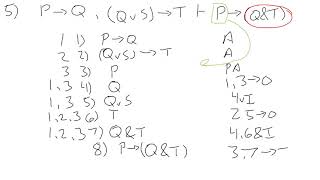 5) P→Q, (QvS)→T ⊢ P→(Q&T)
1 1) P→Q A
2 2) (QvS)→T A
3 3) P PA
1,3 4) Q 1,3→O
1,3 5) QvS 4vI
1,2,3 6) T 2,5→O
1,2,3 7) Q&T 4,6&I
8) P→(Q&T) 3,7→